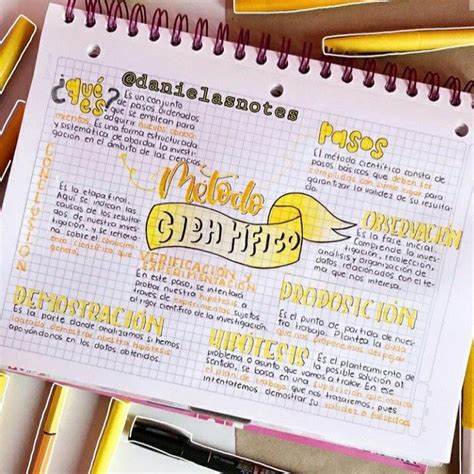 @danielasnotes
¿qué es?
Es un conjunto
de pasos ordenados
que se emplean para
adquirir nuevos conoci-
mientos. Es una forma estructurada
y sistemática de abordar la investi-
gación en el ámbito de las ciencias.
Método
CIENTÍFICO
PASOS
El método científico consta de
pasos básicos que deben ser
cumplidos con sumo rigor para
garantizar la validez de su resulta-
do.
OBSERVACIÓN
Es la fase inicial.
Comprende la inves-
tigación, recolección,
análisis y organización de
datos relacionados con el te-
ma que nos interesa.
PROPOSICIÓN
Es el punto de partida de nues-
tro trabajo. Plantea la duda
que nos proponemos despejar.
HIPÓTESIS
Es el planteamiento de
la posible solución al
problema o asunto que vamos a tratar. En ese
sentido, se basa en una suposición que marca
el plan de trabajo que nos trazaremos, pues
intentaremos demostrar su validez o falsedad.
VERIFICACIÓN
EXPERIMENTACIÓN
En este paso, se intentará
probar nuestra hipótesis a
través de experimentos sujetos
al rigor científico de la investigación.
DEMOSTRACIÓN
Es la parte donde analizamos si hemos
logrado demostrar nuestra hipótesis
apoyándonos en los datos obtenidos.
CONCLUSIÓN
Es la etapa final.
Aquí se indican las
causas de los resulta-
dos de nuestra inves-
tigación, y se reflexio-
na sobre el conocimien-
to científico que
generó.